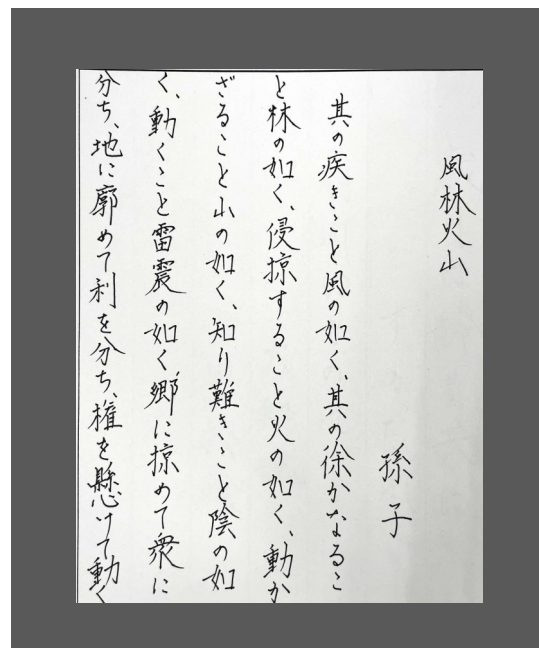 風林火山
孫子
其の疾きこと風の如く、其の徐かなるこ
と林の如く、侵掠すること火の如く、動か
ざること山の如く、知り難きこと陰の如
く、動くこと雷震の如く郷に掠めて衆に
分ち、地に廓めて利を分ち、権を懸けて動く